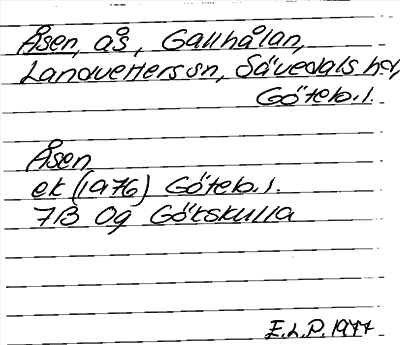 Åsen, ås, Gallhålan,
Landvetters sn, Sävedals hd,
Göteb. l.
Åsen
ek (1976) Göteb. l.
7B 0g Götskulla
E.L.P. 1977